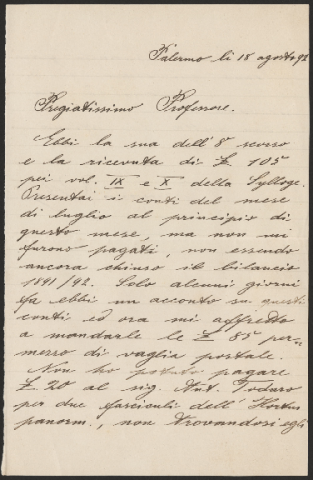 Palermo li 18 agosto 92
Pregiatissimo Professore.
Ebbi la sua dell' 8 scorso
e la ricevuta di £ 105
pei vol. IX e X della Sylloge.
Presentai i conti del mese
di luglio al principio di
questo mese, ma non mi
furono pagati, non essendo
ancora chiuso il bilancio
1891/92. Solo alcuni giorni
fa ebbi un acconto su questi
conti ed ora mi affretto
a mandarle le £ 85 per
mezzo di vaglia postale.
Non ho potuto pagare
£. 20 al sig. Ant. Todaro
per due fascicoli dell' Hortus
panorm., non trovandosi egli